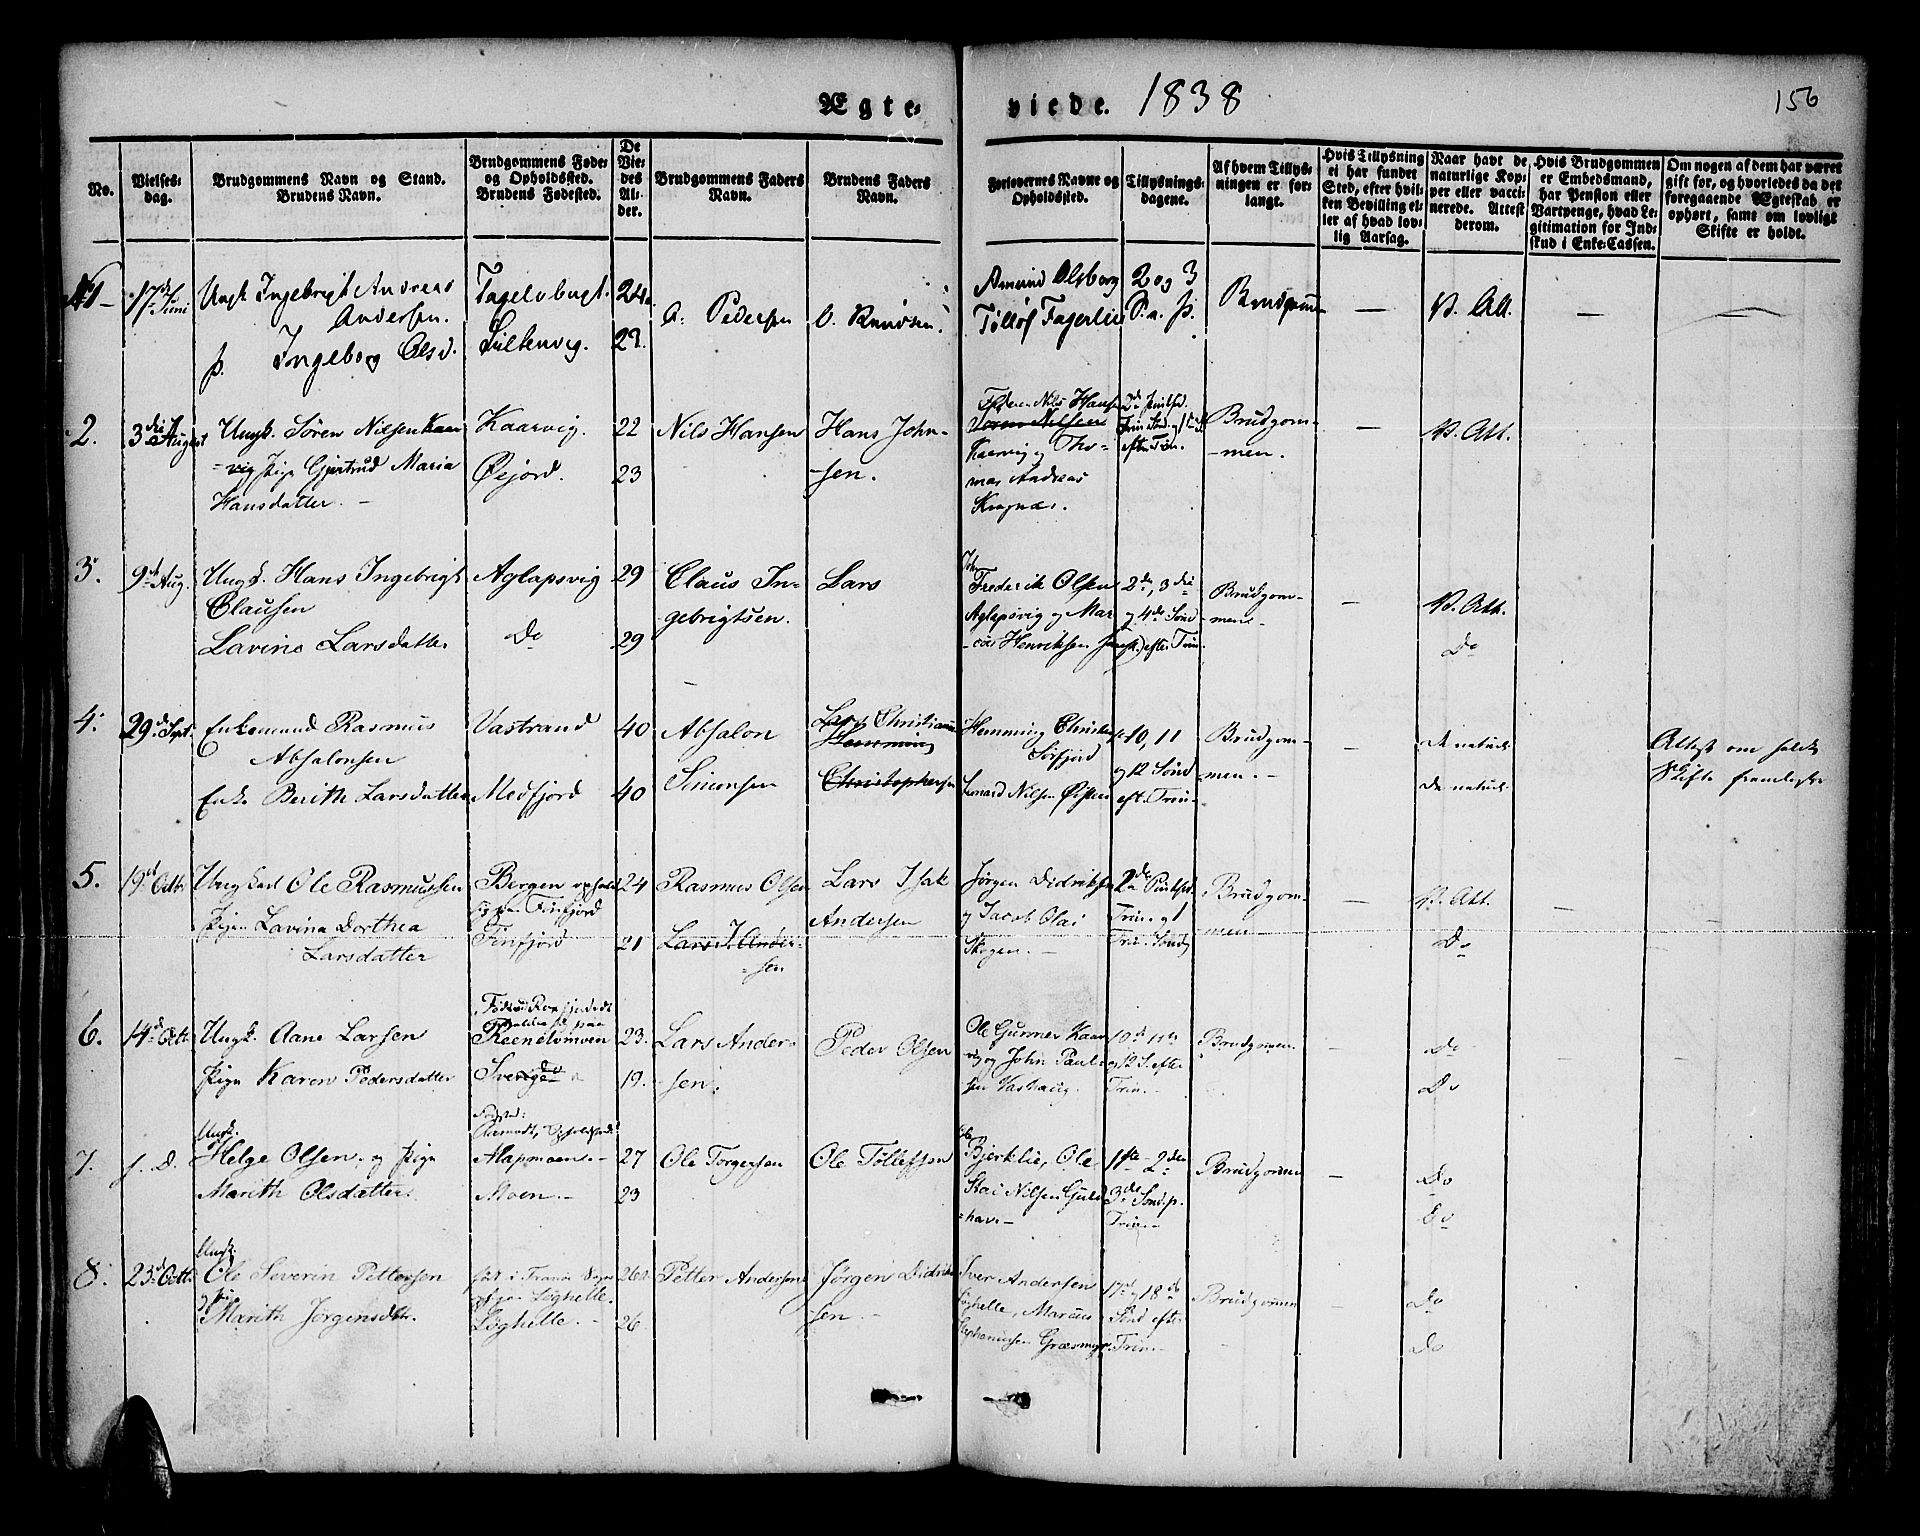 Ægte-
viede. 1838
156
No.
Vielses-
dag.
Brudgommens Navn og Stand.
Brudens Navn.
Brudgommens Føde-
og Opholdssted.
Brudens Fødested.
De
Vie-
des
Al-
der.
Brudgommens Faders
Navn.
Brudens Faders
Navn.
Forlovernes Navne og
Opholdssted.
Tillysnings-
dagene.
Af hvem Tillys-
ningen er for-
langt.
Hvis Tillysning
ei har fundet
Sted, efter hvil-
ken Bevilling el-
ler af hvad lov-
lig Aarsag.
Naar havt de
naturlige Kop-
per eller vacci-
nerede. Attest
derom.
Hvis Brudgommen
er Embedsmand,
har Pension eller
Vartpenge, hvad Le-
gitimation for Ind-
skud i Enke-Cassen.
Om nogen af dem har været
gift før, og hvorledes da det
foregaaende Ægteskab er
ophørt, samt om lovligt
Skifte er holdt.
1-
17de Juni
Ungk Ingebrigt Andreas
Andersen.
p. Ingeborg Olsd.
24
A. Pedersen
O. Knudsen
Amund Olsborg
Tølløf Fagerlie
2 og 3
S. a. p.
V. Att.
2.
3die August
Ungk. Søren Nilsen Kaar
-vig Pige Gjertrud Maria
Hansdatter. -
Kaarvig.
Øejord.
22
23
Nils Hansen
Hans John-
-sen.
Faderen Nils Hansen
Søren Nilsen
Kaarvig og Tho-
mas Andreas
Kragnæs.
efter Trin.
Brudgom-
-men.
V. Att.
3.
9de Aug.
Ungk. Hans Ingebrigt
Clausen
Lavine Larsdatter
Aglapsvig
Do
29
29
Claus In-
gebrigtsen.
Lars
Frederik Olsen
Aglapsvig og Mar
-cus Henriksen
2de, 3die
og 4de Sønd
efter Trin.
Brudgom-
-men
V. Att.
Do
4.
29de Sept.
Enkemand Rasmus
Absalonsen
Enke Berith Larsdatter
Vastrand
Medfjord
40
40
Absalon
Simonsen
Lars Christian
Hemming
Christophersen
Hemming Christen
Sørfjord
Leonard Nilsen
10, 11
og 12 Sønd
eft. Trin-
Brudgom-
men.-
de naturl.
de naturl.
Attest om holdt
Skifte fremlagt
5.
19de Octb
Ungkarl Ole Rasmussen
Pigen Lavina Dorthea
Larsdatter
Bergen ophold
Finfjord
Finfjord
24
21
Rasmus Olsen
Lars I. Ander-
-sen
Lars Isak
Andersen
Jørgen Didriksen
og Jacob Olai
Skogen. -
2de Pintsed.
Trin. og 1
Trin. Sønd
Brudgom-
men-
V. Att.
Do
6.
14de Octb
Ungk. Aane Larsen
Pige Karen Pedersdatter
Reenelvmoen
Sverige
23.
19.
Lars Ander-
-sen.
Peder Olsen
Ole Gunner Kaar
vig og John Paul-
sen Vashaug.
10de 11te
og 12 S. efter
Trin.-
Brudgommen
Do
Do
7.
s. D.
Ungk.
Helge Olsen. og Pige
Marith Olsdatter.
Alapmoen.-
Moen.-
27
23
Ole Torgersen
Ole Tollefsen
Bjerklie, Ole
Nilsen Guld
-hav-
1ste 2den
3die Sønd. p.
Trin.-
Brudgommen
Do
Do
8.
23de Octb.
Ungk.
Ole Severin Pettersen
og Pige
Marith Jørgensdtr.
Løghelle.
Løghelle. -
26
26
Petter Andersen
Jørgen Didrik
sen -
Iver Andersen
Løghelle, Marcus
Stephanussen Græsmyr
17de og 18de
Sønd efter
Trin.-
Brudgommen
Do
Do